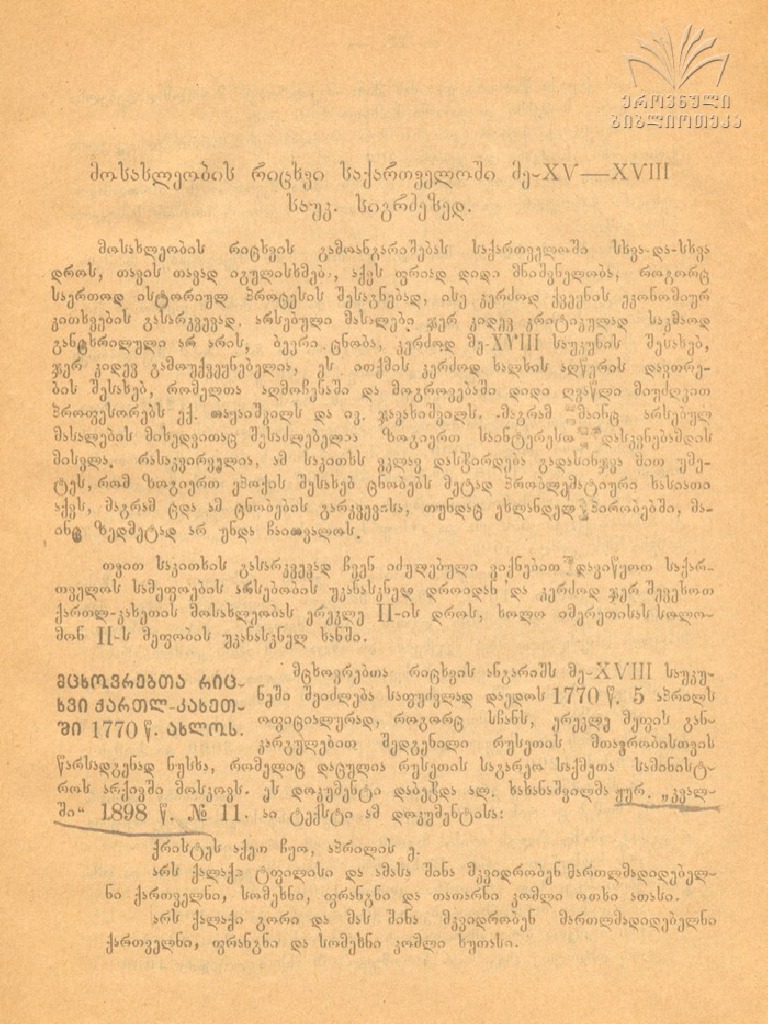 ეროვნული
ბიბლიოთეკა
მოსახლეობის რიცხვი საქართველოში მე-XV—XVIII
საუკ. სიგრძეზედ.
მოსახლეობის რიცხვის გამოანგარიშებას საქართველოში სხვა-და-სხვა
დროს, თავის თავად იგულისხმება, აქვს ფრიად დიდი მნიშვნელობა, როგორც
საერთოდ ისტორიულ პროცესის შესაგნებად, ისე კერძოდ ქვეყნის ეკონომიურ
კითხვების გასარკვევად, არსებული მასალები ჯერ კიდევ კრიტიკულად საკმაოდ
განცხრილული არ არის, ბევრი ცნობა, კერძოდ მე-XVIII საუკუნის შესახებ,
ჯერ კიდევ გამოუქვეყნებელია, ეს ითქმის კერძოდ ხალხის აღწერის დავთრე-
ბის შესახებ, რომელთა აღმოჩენაში და მოგროვებაში დიდი ღვაწლი მიუძღვით
პროფესორებს ექ. თაყაიშვილს და ივ. ჯავახიშვილს. მაგრამ მაინც არსებულ
მასალების მიხედვითაც შესაძლებელია ზოგიერთ საინტერესო დასკვნებამდის
მისვლა. რასაკვირველია, ამ საკითხს კვლავ დასჭირდება გადასინჯვა მით უმე-
ტეს, რომ ზოგიერთ ეპოქის შესახებ ცნობებს მეტად პრობლემატიური ხასიათი
აქვს, მაგრამ ცდა ამ ცნობების გარკვევისა, თუნდაც ეხლანდელ პირობებში, მა-
ინც ზედმეტად არ უნდა ჩაითვალოს.
თვით საკითხის გასარკვევად ჩვენ იძულებული ვიქნებით დავიწყოთ საქარ-
თველოს სამეფოების არსებობის უკანასკნელ დროიდან და კერძოდ ჯერ შევეხოთ
ქართლ-კახეთის მოსახლეობას ერეკლე II-ის დროს, ხოლო იმერეთისას სოლო-
მონ II-ს მეფობის უკანასკნელ ხანში.
მცხოვრებთა რიც-
ხვი ქართლ-კახეთ-
ში 1770 წ. ახლოს.
მცხოვრებთა რიცხვის ანგარიშს მე-XVIII საუკუ-
ნეში შეიძლება საფუძვლად დაედოს 1770 წ. 5 აპრილს
ოფიციალურად, როგორც სჩანს, ერეკლე მეფის გან-
კარგულებით შედგენილი რუსეთის მთავრობისთვის
წარსადგენად ნუსხა, რომელიც დაცულია რუსეთის საგარეო საქმეთა სამინისტ-
როს არქივში მოსკოვს. ეს დოკუმენტი დაბეჭდა ალ. ხახანაშვილმა ჟურ. „კვალ-
ში“ 1898 წ. № 11. აი ტექსტი ამ დოკუმენტისა:
ქრისტეს აქეთ ჩღო, აპრილის ე.
არს ქალაქი ტფილისი და ამასა შინა მკვიდრობენ მართლმადიდებელ-
ნი ქართველნი, სომეხნი, ფრანგნი და თათარნი კომლი ოთხი ათასი.
არს ქალაქი გორი და მას შინა მკვიდრობენ მართლმადიდებელნი
ქართველნი, ფრანგნი და სომეხნი კომლი ხუთასი.